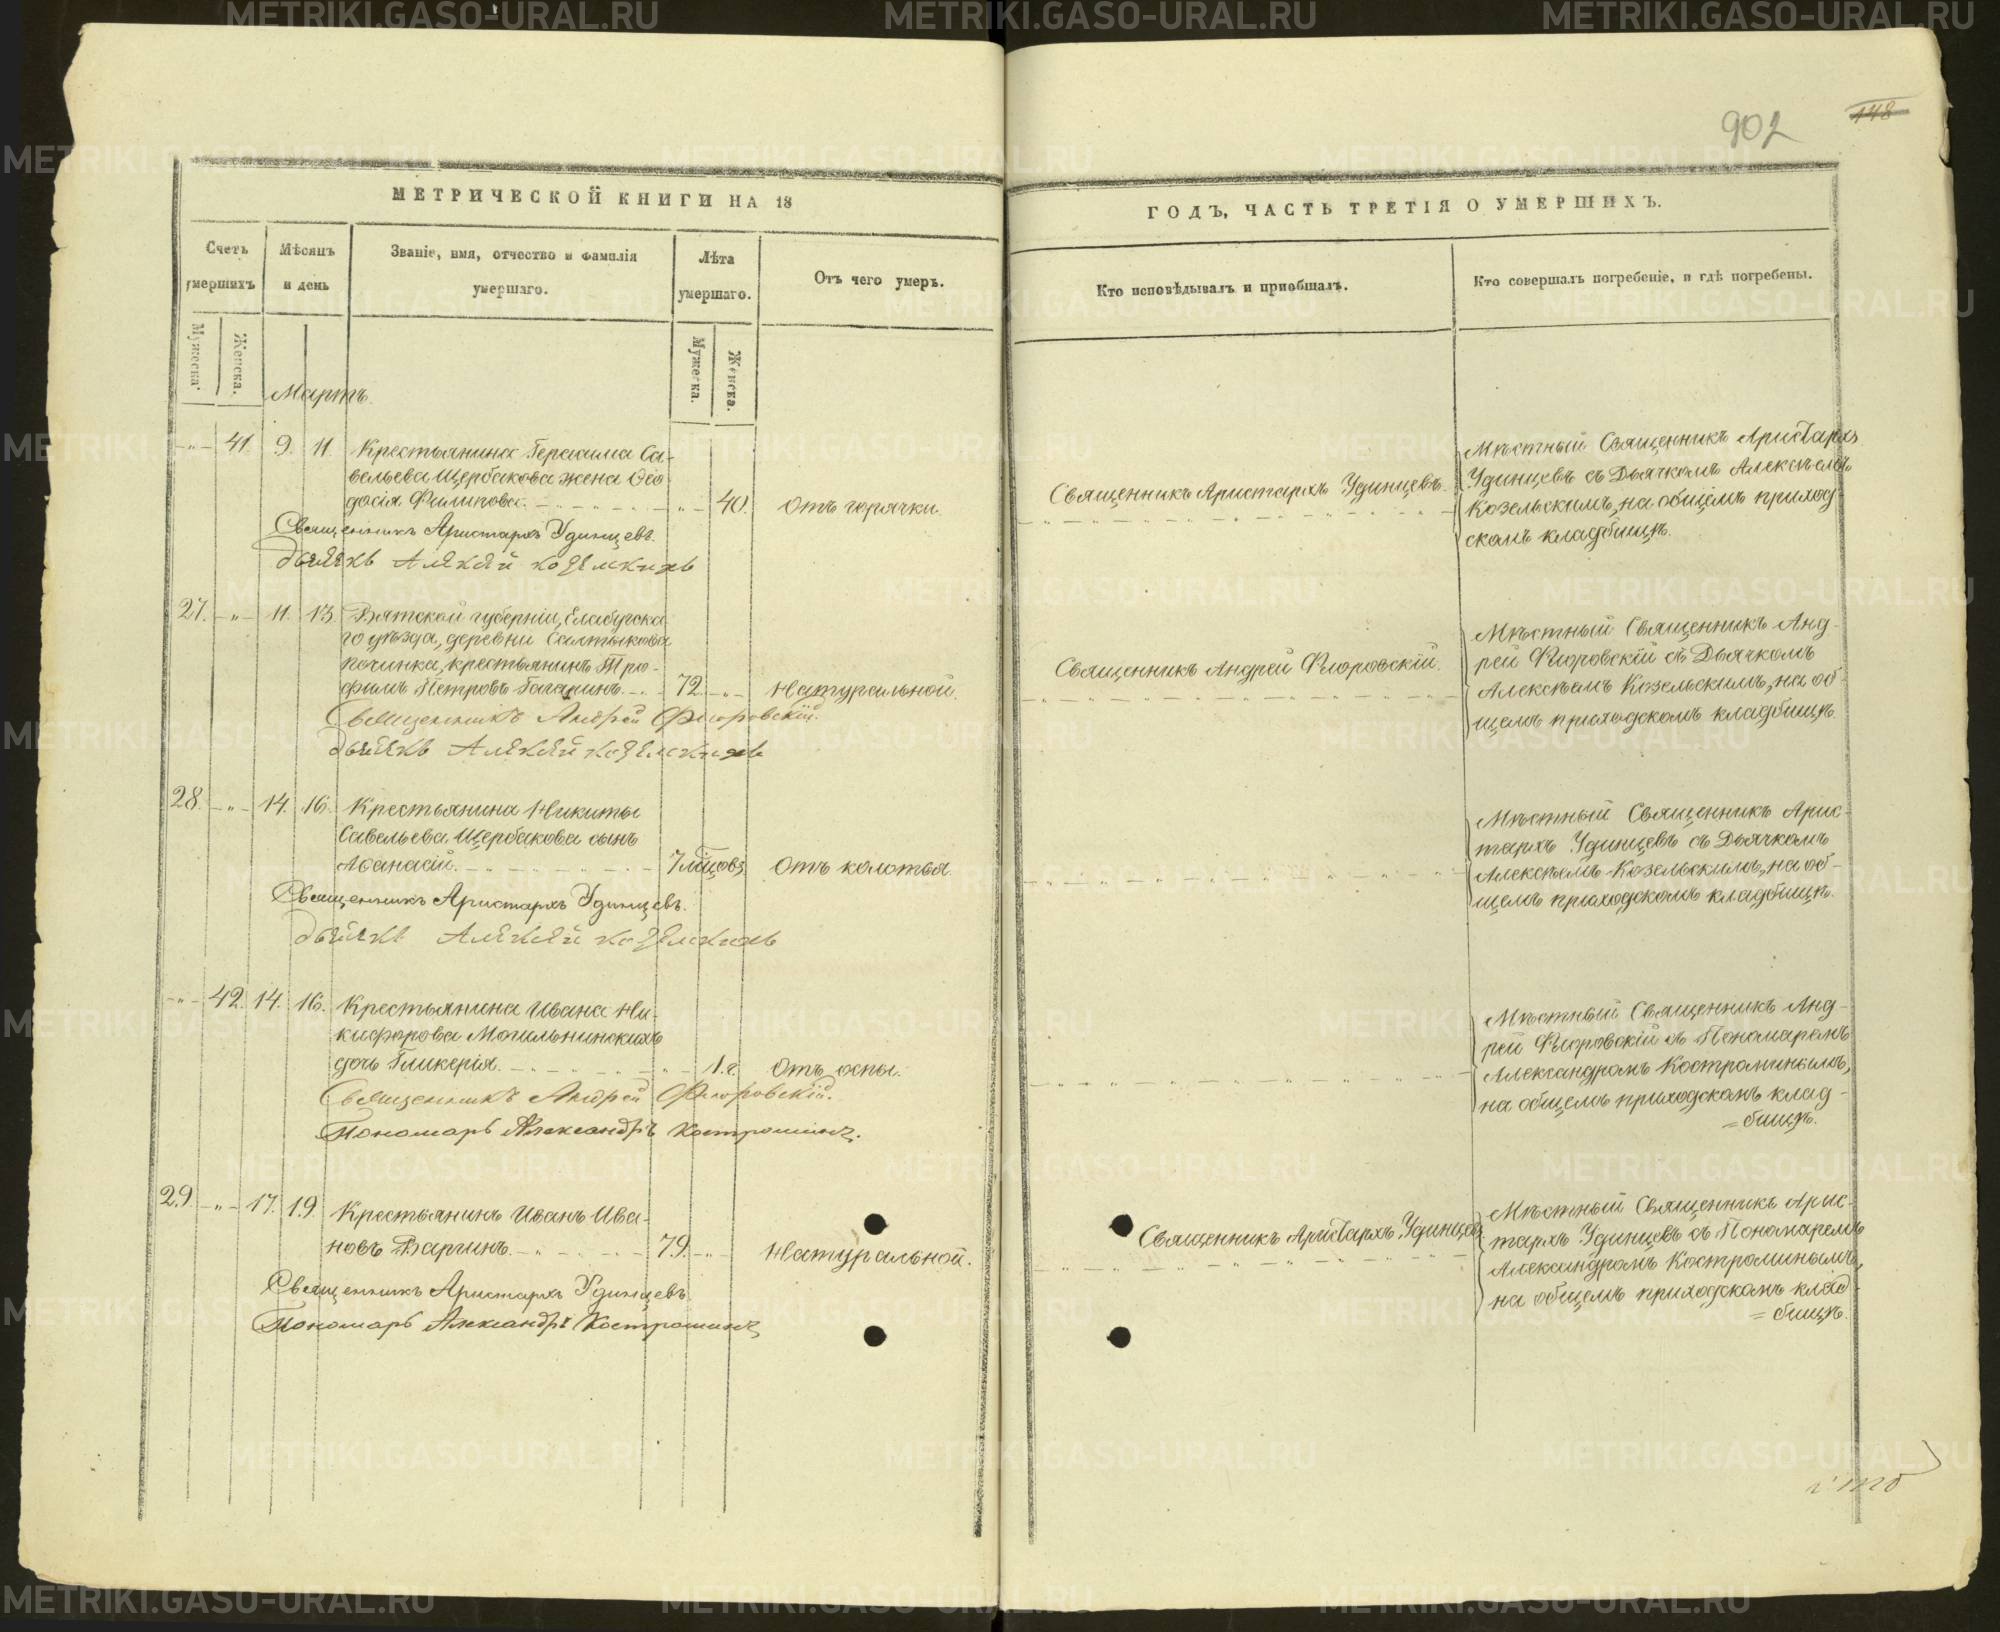 902
148
МЕТРИЧЕСКОЙ КНИГИ НА 18
Счетъ умершихъ
Мужеска.
Женска.
Мѣсяцъ и день
Званіе, имя, отчество и фамилія умершаго.
Лѣта умершаго.
Мужеска.
Женска.
Отъ чего умеръ.
ГОДЪ, ЧАСТЬ ТРЕТІЯ О УМЕРШИХЪ.
Кто исповѣдывалъ и пріобщалъ.
Кто совершалъ погребеніе, и гдѣ погребены.
Мартъ.
-"- 41. 9. 11. Крестьянина Герасима Са-
вельева Щербакова жена Ѳео-
досія Филипова. -"- 40. Отъ горячки.
Священникъ Аристархъ Удинцевъ.
Мѣстный Священникъ Аристархъ
Удинцевъ съ Дьячкомъ Алексѣемъ
Козельскимъ, на общемъ приход-
скомъ кладбищѣ.
Священникъ Аристархъ Удинцевъ.
Дьячекъ Алексѣй Козельскихъ
27. -"- 11. 13. Вятской губерніи, Елабугска-
го уѣзда, деревни Салтыкова
починка, крестьянинъ Тро-
фимъ Петровъ Гагаринъ. 72. -"- Натуральной.
Священникъ Андрей Флоровскій.
Мѣстный Священникъ Анд-
рей Флоровскій съ Дьячкомъ
Алексѣемъ Козельскимъ, на об-
щемъ приходскомъ кладбищѣ.
Священникъ Андрей Флоровскій.
Дьячекъ Алексѣй Козельскихъ
28. -"- 14. 16. Крестьянина Никиты
Савельева Щербакова сынъ
Аѳанасій. 7 мѣсцовъ Отъ колотья.
Мѣстный Священникъ Арис-
тархъ Удинцевъ съ Дьячкомъ
Алексѣемъ Козельскимъ, на об-
щемъ приходскомъ кладбищѣ.
Священникъ Аристархъ Удинцевъ.
Дьячекъ Алексѣй Козельскихъ
-"- 42. 14. 16. Крестьянина Ивана Ни-
кифорова Могильнинскихъ
дочь Гликерія. -"- 1.г. Отъ оспы.
Мѣстный Священникъ Анд-
рей Флоровскій съ Пономаремъ
Александромъ Костроминымъ,
на общемъ приходскомъ клад-
=бищѣ.
Священникъ Андрей Флоровскій.
Пономарь Александръ Костроминъ.
29. -"- 17. 19. Крестьянинъ Иванъ Ива-
новъ Варгинъ. 79. -"- Натуральной.
Священникъ Аристархъ Удинцевъ
Мѣстный Священникъ Арис-
тархъ Удинцевъ съ Пономаремъ
Александромъ Костроминымъ,
на общемъ приходскомъ клад-
=бищѣ.
Священникъ Аристархъ Удинцевъ
Пономарь Александръ Костроминъ
METRIKI.GASO-URAL.RU